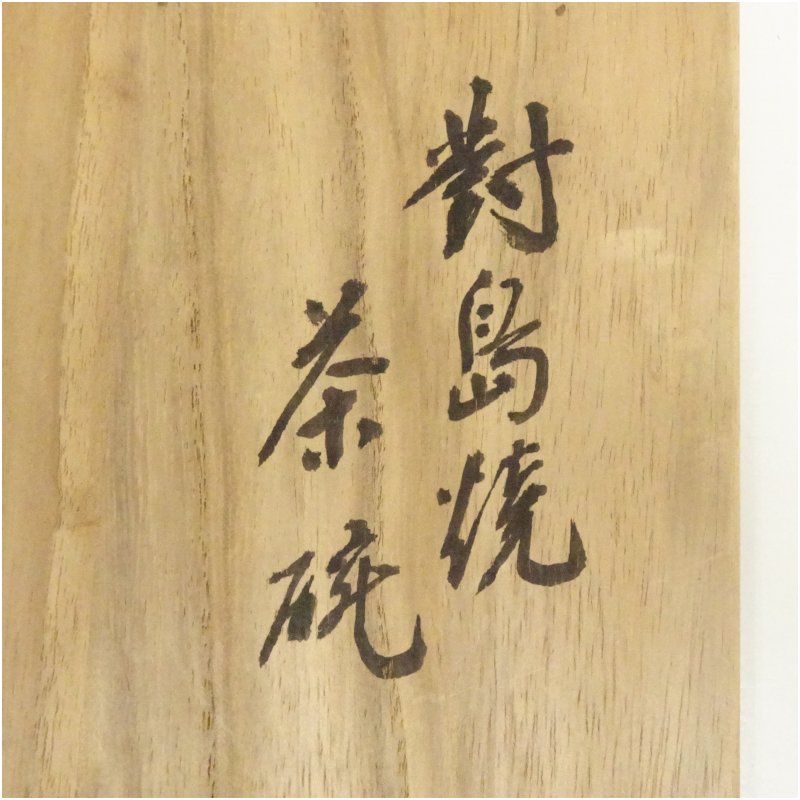 對島燒
茶碗